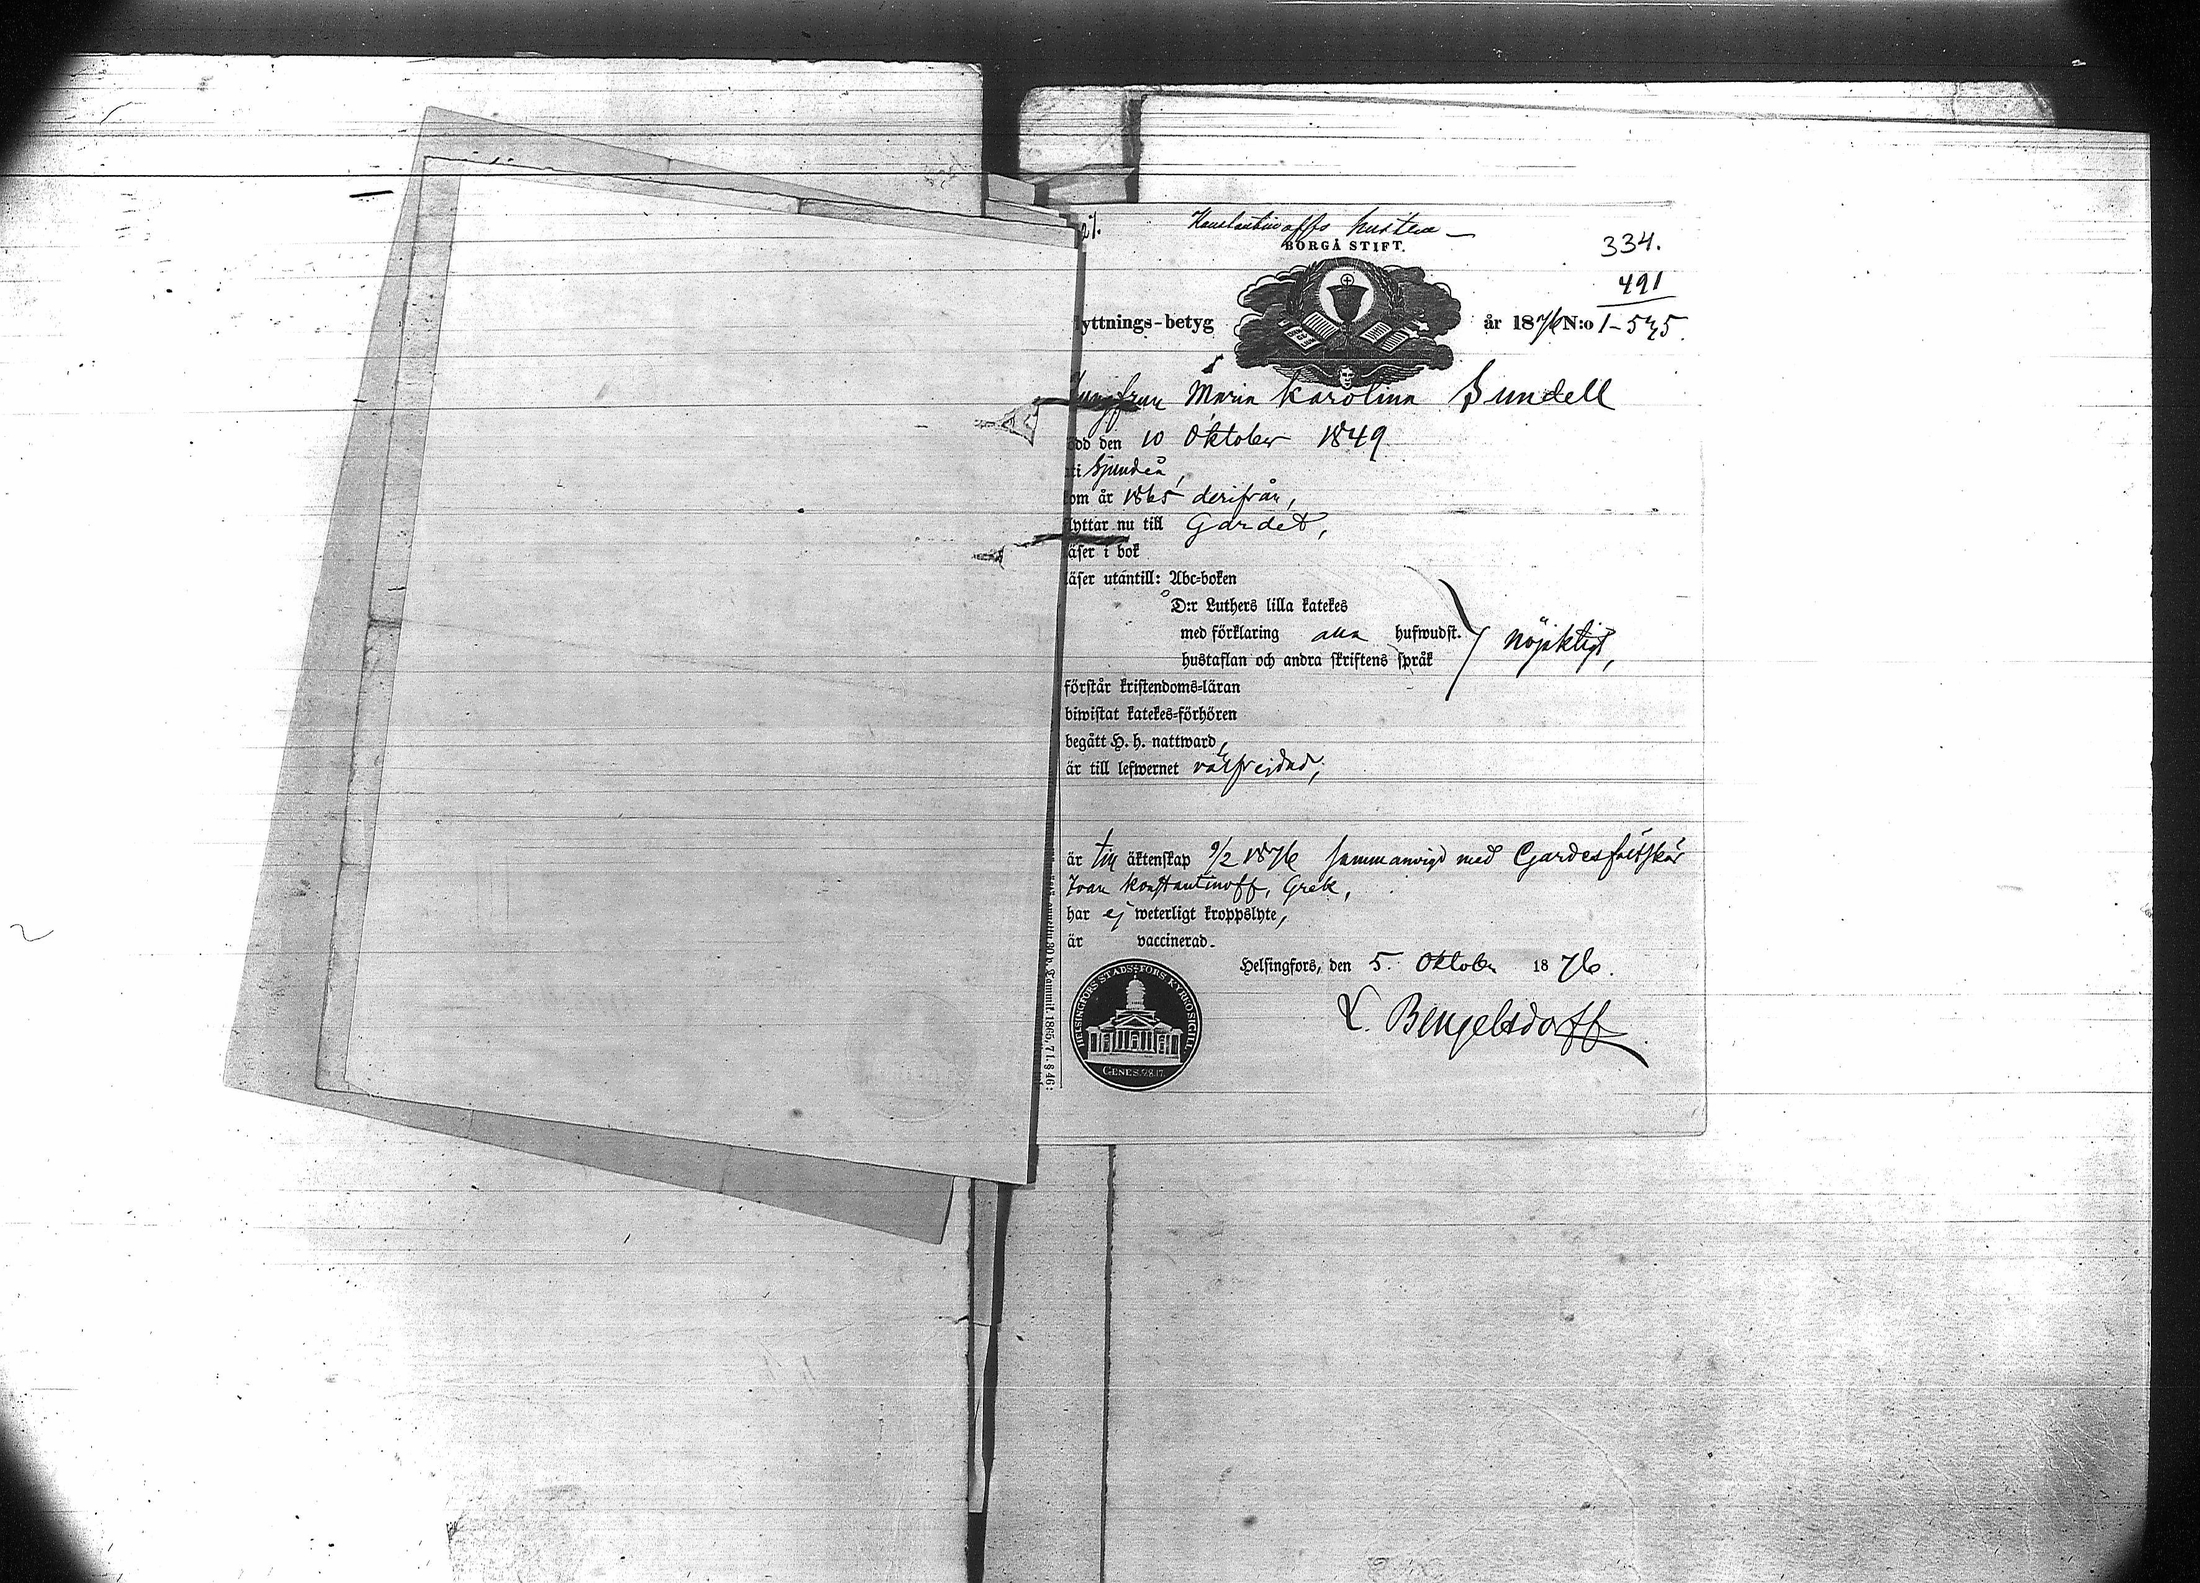 Konstantinoffs hustru —
BORGÅ STIFT.
334.
491
yttnings-betyg
år 1876 N:o 1-575.
Jungfrun Maria Karolina Sundell
ödd den 10 Oktober 1849
i Sjundeå
om år 1865 derifrån,
lyttar nu till Gardet,
äser i bok
läser utantill: Abc-boken
D:r Luthers lilla katekes
med förklaring alla hufwudst.
nöjaktigt,
hustaflan och andra skriftens språk
förstår kristendoms-läran
biwistat katekes-förhören
begått H. h. nattward,
är till lefwernet välfrejdad,
är till äktenskap 9/2 1876 sammanvigd med Gardesfältskär
Ivan Konstantinoff, Grek,
har ej weterligt kroppslyte,
är vaccinerad.
Helsingfors, den 5. Oktober 1876.
L. Bengelsdorff
HELSINGFORS STADS-FÖRS. KYRKOSIGILL
GENES. 28.17.